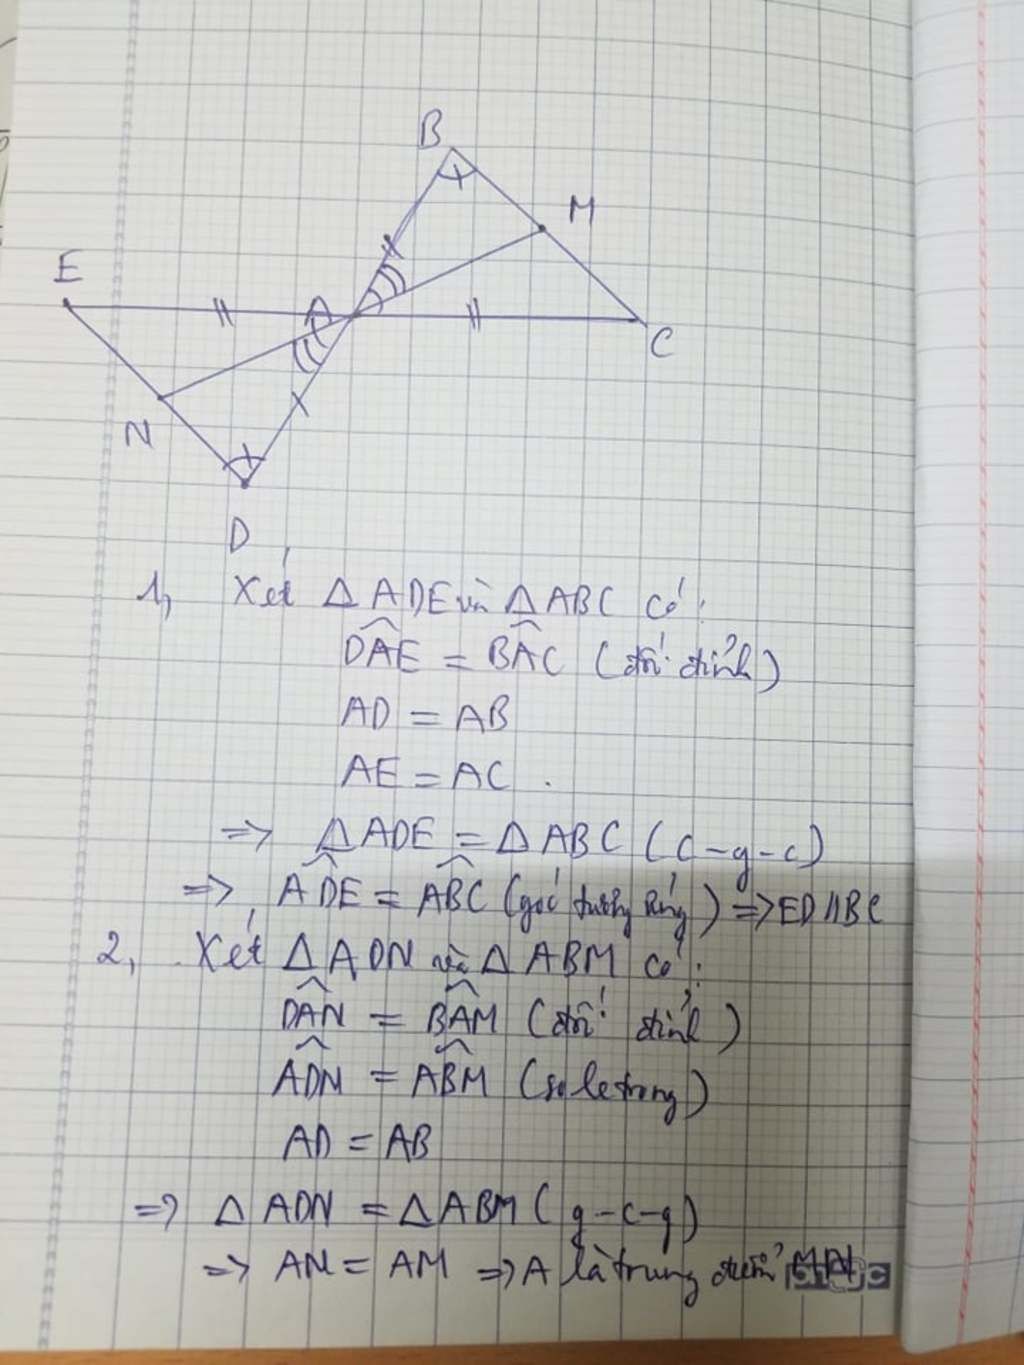 B
M
E
A
C
N
D
1, Xét Δ ADE và Δ ABC có:
\widehat{DAE} = \widehat{BAC} (đối đỉnh)
AD = AB
AE = AC .
=> Δ ADE = Δ ABC (c-g-c)
=> \widehat{ADE} = \widehat{ABC} (góc tương ứng) => ED // BC
2, Xét Δ ADN và Δ ABM có:
\widehat{DAN} = \widehat{BAM} (đối đỉnh)
\widehat{ADN} = \widehat{ABM} (so le trong)
AD = AB
=> Δ ADN = Δ ABM (g-c-g)
=> AN = AM => A là trung điểm MN